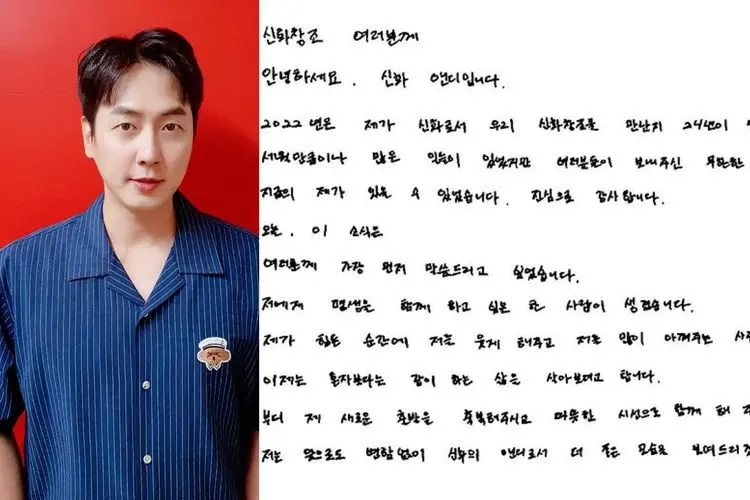 신화창조 여러분께
안녕하세요. 신화 앤디입니다.
2022년은 제가 신화로서 우리 신화창조를 만난지 24년이
세월만큼이나 많은 일들이 있었지만 여러분들이 보내주신 무한한
지금의 제가 있을 수 있었습니다. 진심으로 감사합니다.
오늘, 이 소식은
여러분께 가장 먼저 말씀드리고 싶었습니다.
저에게 평생을 함께 하고 싶은 한 사람이 생겼습니다.
제가 힘든 순간에 저를 웃게 해주고 저를 많이 아껴주는
이제는 혼자보다는 같이 하는 삶을 살아보려고 합니다.
부디 제 새로운 출발을 축복해주시고 따뜻한 시선으로 함께 해
저는 앞으로도 변함없이 신화의 앤디로서 더 좋은 모습을